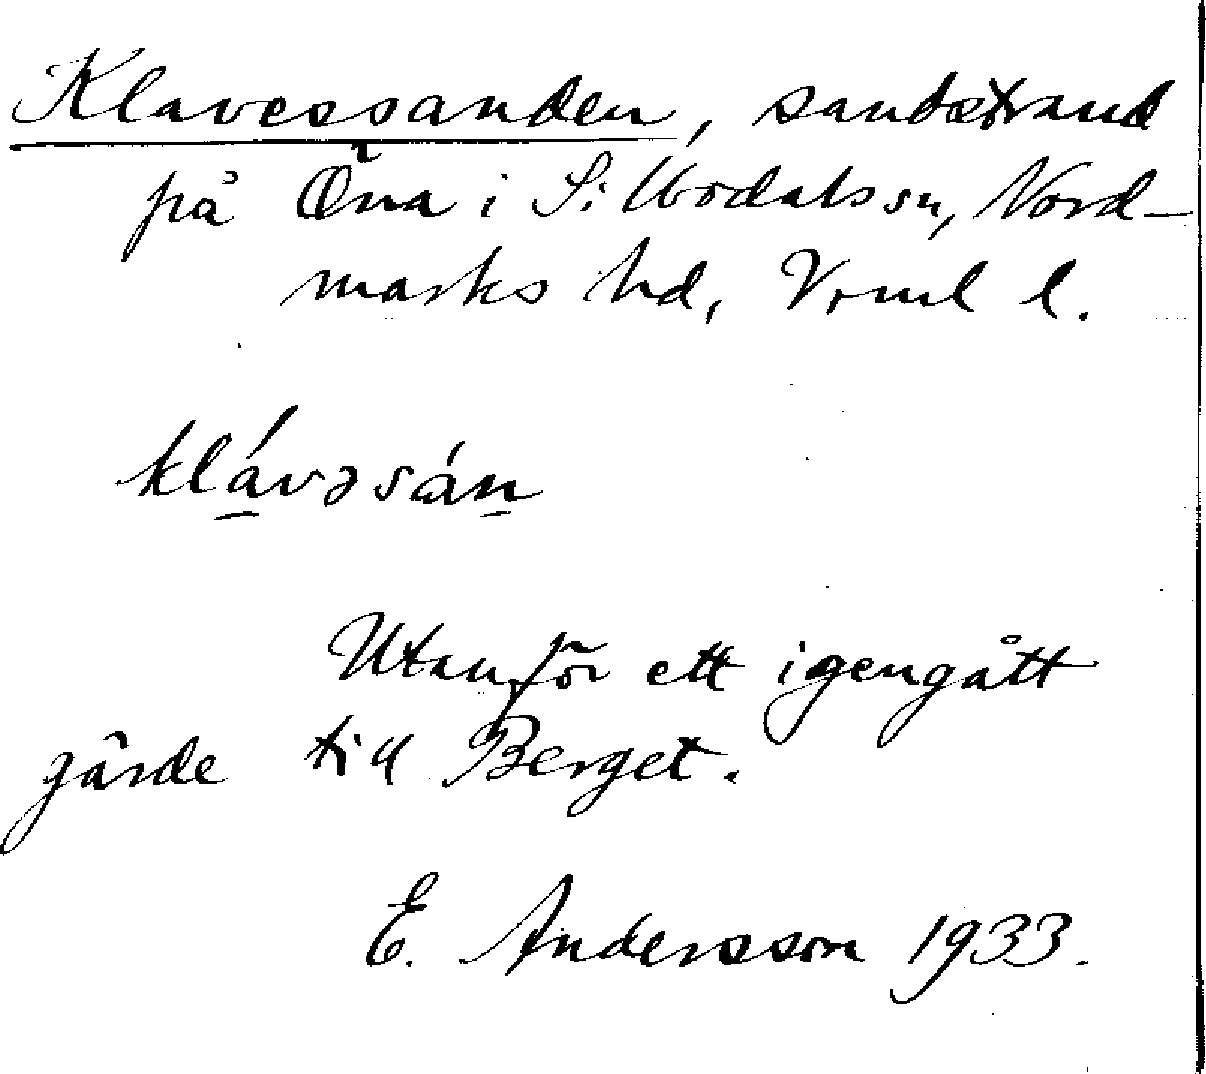 Klavessanden, sandstrand
på Öna i S. Uvdals sn, Nord-
marks hd, Vrml l.
klávəsán
Utanför ett igengått
gärde till Berget.
E. Andersson 1933.